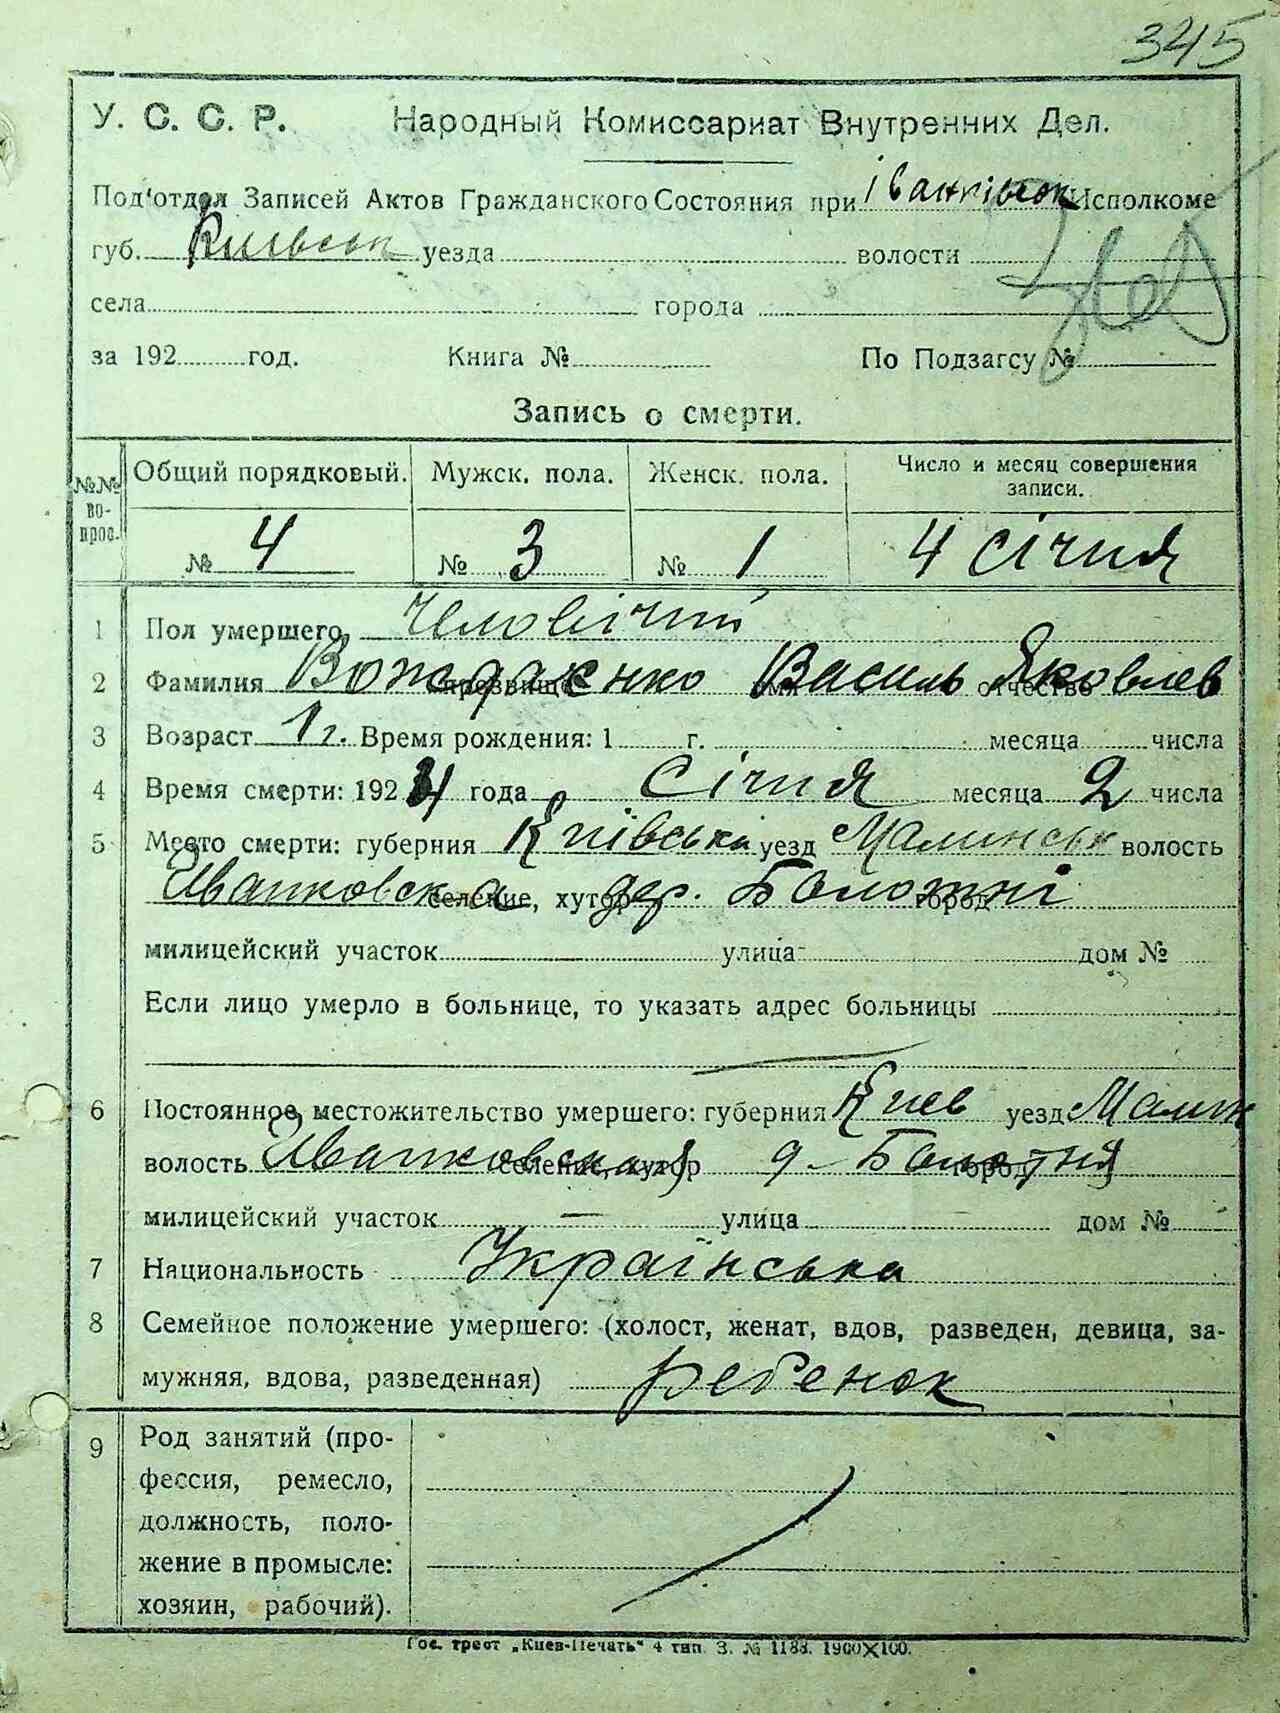 345
У. С. С. Р. Народный Комиссариат Внутренних Дел.
Под'отдел Записей Актов Гражданского Состояния при Іванківськ Исполкоме
губ. Київськ уезда волости
села города
за 192 год. Книга № По Подзагсу №
Запись о смерти.
№№ вопрос. Общий порядковый. Мужск. пола. Женск. пола. Число и месяц совершения записи.
№ 4 № 3 № 1 4 січня
1 Пол умершего Чловічий
2 Фамилия прозвище Вождаенко имя Василь отчество Яковлев
3 Возраст 1 г. Время рождения: 1 г. месяца числа
4 Время смерти: 1924 года Січня месяца 2 числа
5 Место смерти: губерния Київська уезд Малинськ волость
Иванковска селение, хутор дер. Болотні город
милицейский участок улица дом №
Если лицо умерло в больнице, то указать адрес больницы
6 Постоянное местожительство умершего: губерния Киев уезд Малин
волость Иванковская селение, хутор д. Болотня город
милицейский участок — улица дом №
7 Национальность Українська
8 Семейное положение умершего: (холост, женат, вдов, разведен, девица, за-
мужняя, вдова, разведенная) ребенок
9 Род занятий (про-
фессия, ремесло,
должность, поло-
жение в промысле:
хозяин, рабочий).
Гос. трест „Киев-Печать" 4 тип. З. № 1188. 1900X100.